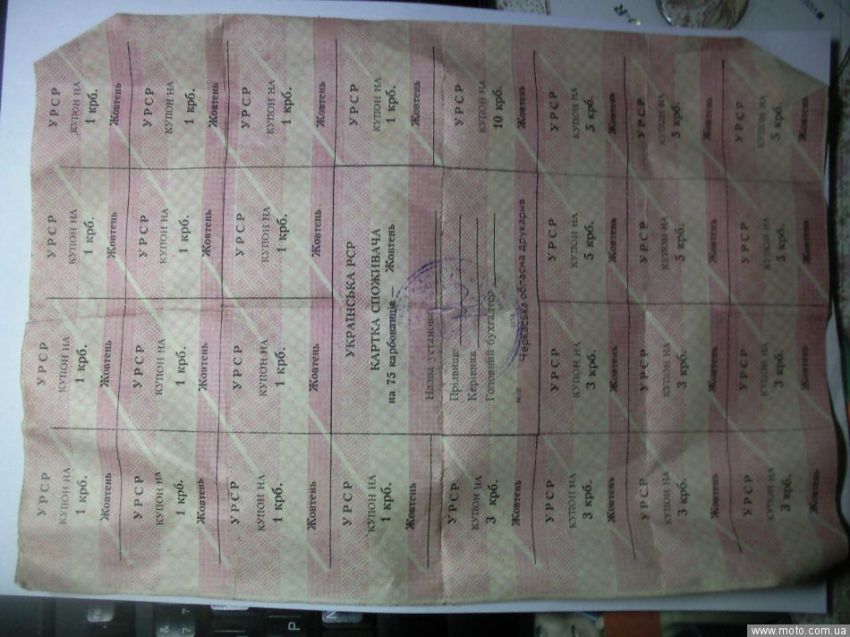 УРСР
КУПОН НА
1 крб.
Жовтень
УРСР
КУПОН НА
1 крб.
Жовтень
УРСР
КУПОН НА
1 крб.
Жовтень
УРСР
КУПОН НА
1 крб.
Жовтень
УРСР
КУПОН НА
1 крб.
Жовтень
УРСР
КУПОН НА
1 крб.
Жовтень
УРСР
КУПОН НА
1 крб.
Жовтень
УРСР
КУПОН НА
1 крб.
Жовтень
УРСР
КУПОН НА
1 крб.
Жовтень
УРСР
КУПОН НА
1 крб.
Жовтень
УРСР
КУПОН НА
1 крб.
Жовтень
УРСР
КУПОН НА
1 крб.
Жовтень
УРСР
КУПОН НА
1 крб.
Жовтень
УКРАЇНСЬКА РСР
КАРТКА СПОЖИВАЧА
на 75 карбованців — Жовтень
Назва установи
Прізвище
Керівник
Головний бухгалтер
М.П.
Черкаська обласна друкарня
УРСР
КУПОН НА
1 крб.
Жовтень
УРСР
КУПОН НА
3 крб.
Жовтень
УРСР
КУПОН НА
10 крб.
Жовтень
УРСР
КУПОН НА
3 крб.
Жовтень
УРСР
КУПОН НА
3 крб.
Жовтень
УРСР
КУПОН НА
5 крб.
Жовтень
УРСР
КУПОН НА
5 крб.
Жовтень
УРСР
КУПОН НА
3 крб.
Жовтень
УРСР
КУПОН НА
3 крб.
Жовтень
УРСР
КУПОН НА
5 крб.
Жовтень
УРСР
КУПОН НА
5 крб.
Жовтень
УРСР
КУПОН НА
3 крб.
Жовтень
УРСР
КУПОН НА
3 крб.
Жовтень
УРСР
КУПОН НА
5 крб.
Жовтень
УРСР
КУПОН НА
5 крб.
Жовтень
www.moto.com.ua